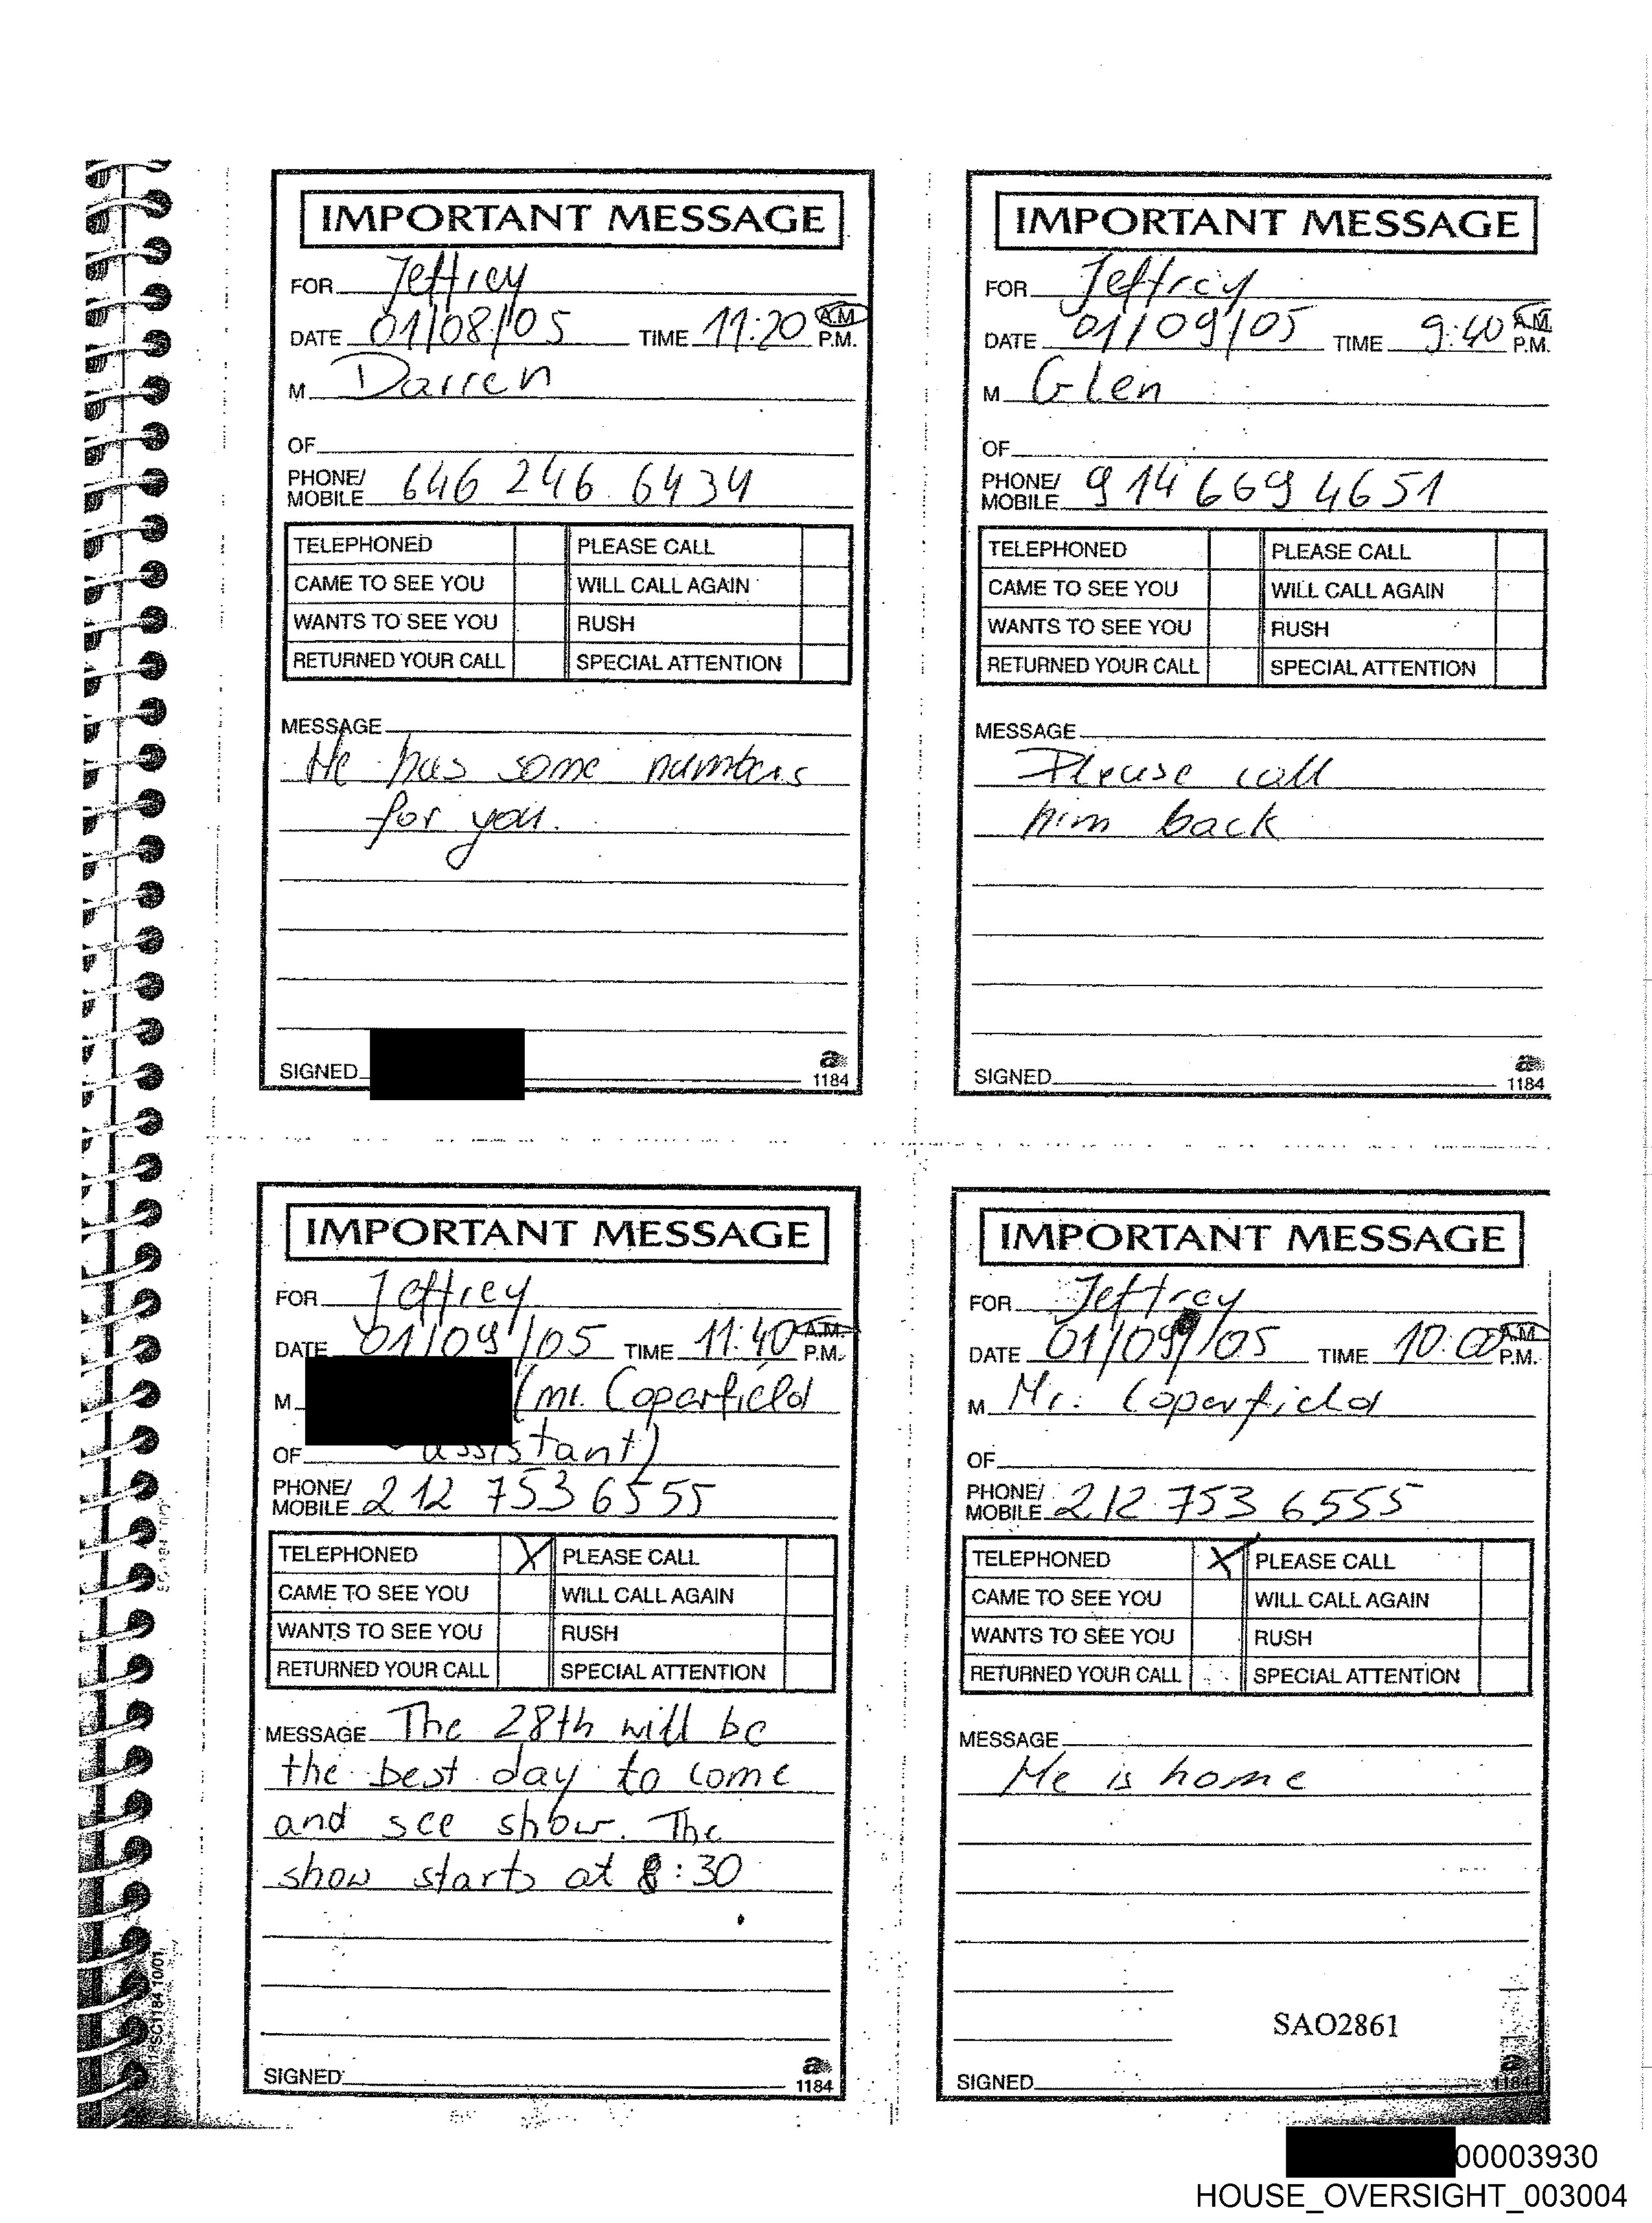 IMPORTANT MESSAGE
FOR Jeffrey
DATE 01/08/05 TIME 11:20 A.M. P.M.
M Darren
OF
PHONE/ MOBILE 646 246 6434
TELEPHONED PLEASE CALL
CAME TO SEE YOU WILL CALL AGAIN
WANTS TO SEE YOU RUSH
RETURNED YOUR CALL SPECIAL ATTENTION
MESSAGE
He has some numbers
for you.
SIGNED
a
1184
IMPORTANT MESSAGE
FOR Jeffrey
DATE 01/09/05 TIME 9:40 A.M. P.M.
M Glen
OF
PHONE/ MOBILE 914 669 4651
TELEPHONED PLEASE CALL
CAME TO SEE YOU WILL CALL AGAIN
WANTS TO SEE YOU RUSH
RETURNED YOUR CALL SPECIAL ATTENTION
MESSAGE
Please call
him back
SIGNED
a
1184
IMPORTANT MESSAGE
FOR Jeffrey
DATE 01/09/05 TIME 11:40 A.M. P.M.
M (mr. Coperfield
OF assistant)
PHONE/ MOBILE 212 753 6555
TELEPHONED X PLEASE CALL
CAME TO SEE YOU WILL CALL AGAIN
WANTS TO SEE YOU RUSH
RETURNED YOUR CALL SPECIAL ATTENTION
MESSAGE The 28th will be
the best day to come
and see show. The
show starts at 8:30
SIGNED
a
1184
IMPORTANT MESSAGE
FOR Jeffrey
DATE 01/09/05 TIME 10:00 A.M. P.M.
M Mr. Coperfield
OF
PHONE/ MOBILE 212 753 6555
TELEPHONED X PLEASE CALL
CAME TO SEE YOU WILL CALL AGAIN
WANTS TO SEE YOU RUSH
RETURNED YOUR CALL SPECIAL ATTENTION
MESSAGE
He is home
SAO2861
SIGNED
a
1184
00003930
HOUSE_OVERSIGHT_003004